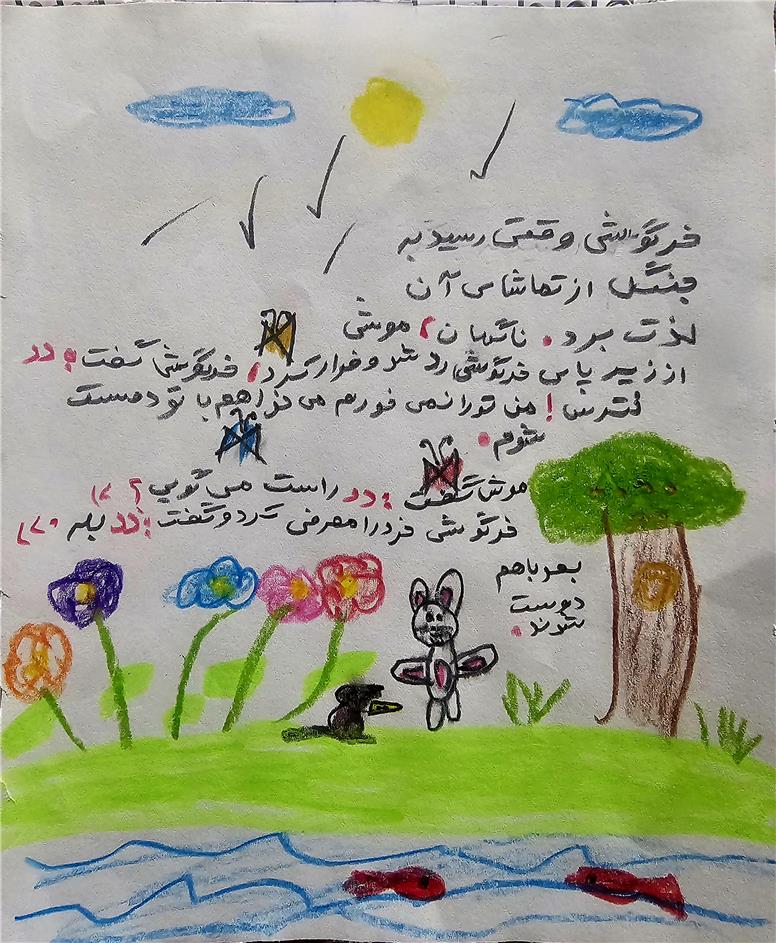 خرگوشی وقتی رسید به
جنگل از تماشای آن
لذت برد. ناگهان، موشی
از زیر پای خرگوشی رد شد و فرار کرد، خرگوشی گفت: ((
نترس! من تو را نمی خورم می خواهم با تو دوست
شوم.
موش گفت: (( راست می گویی؟))
خرگوشی خودرا معرفی کرد و گفت: (( بله.))
بعد باهم
دوست
شوند.